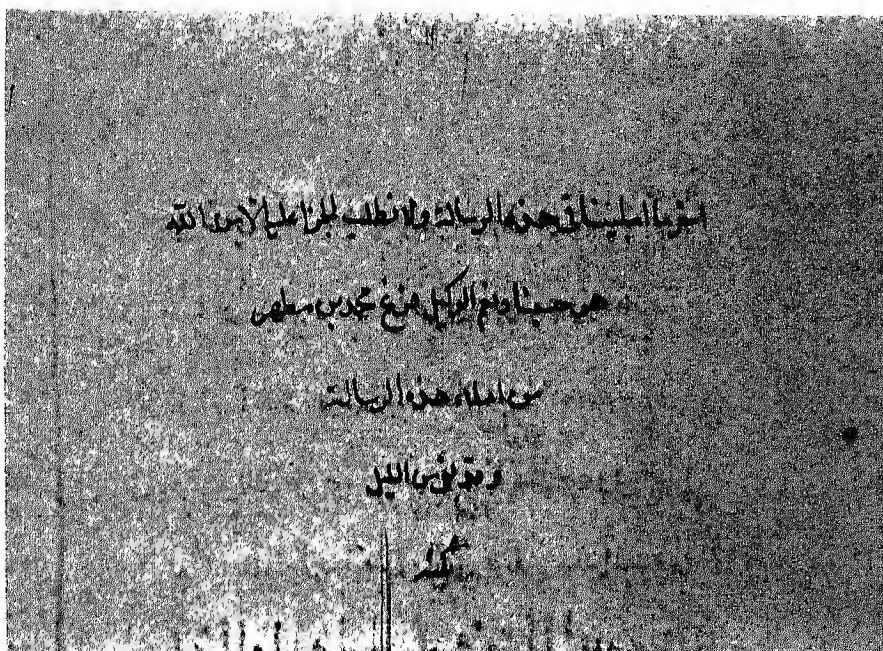 اخر ما املينا في هذه الرسالة ولا نطلب الجزا عليها الا من الله
هو حسبنا ونعم الوكيل فرغ محمد بن مطهر
من املاء هذه الرسالة
وقت من الليل